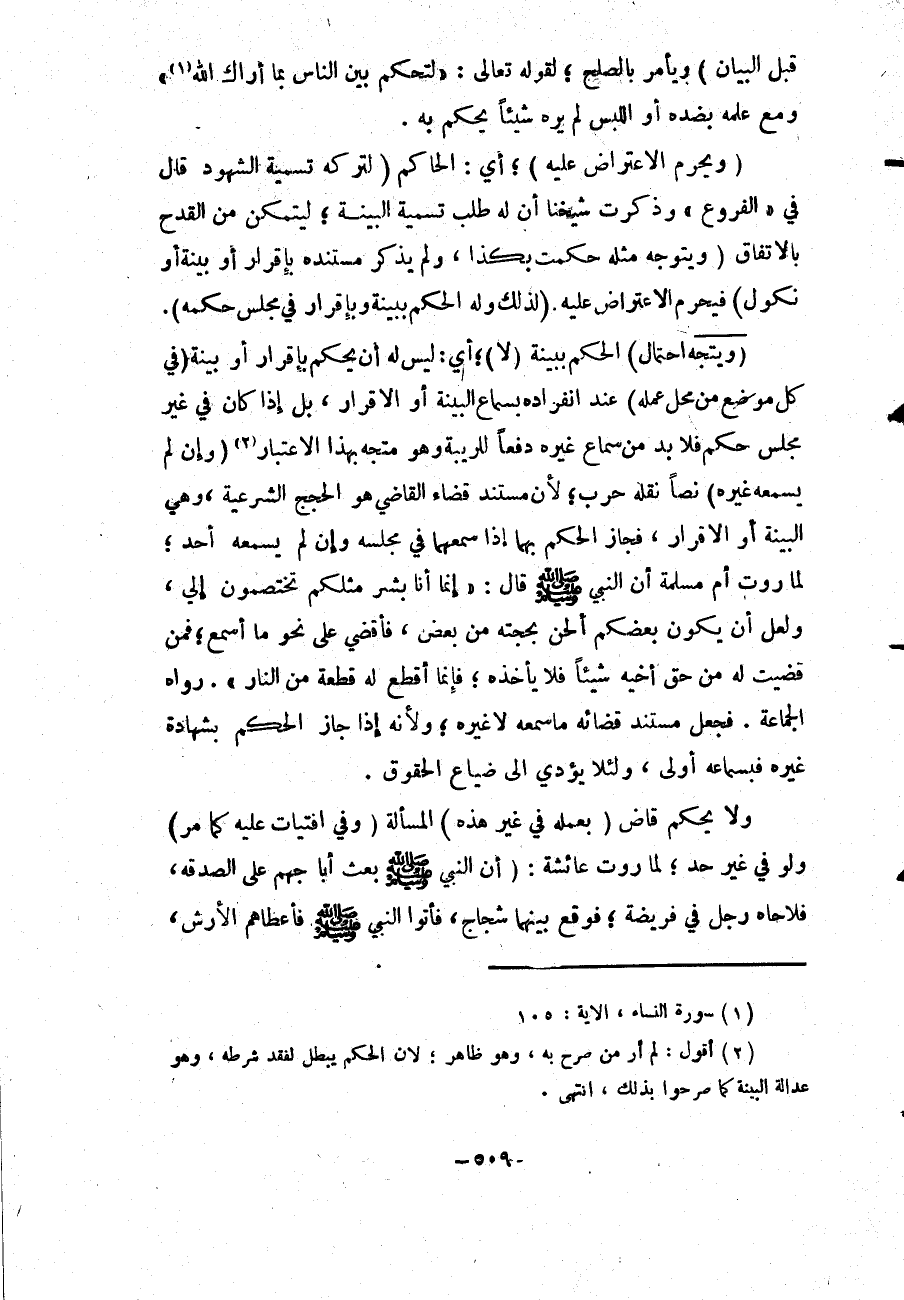 قبل البيان ) ويأمر بالصلح ؛ لقوله تعالى : « لتحكم بين الناس بما أراك الله(١) »
ومع علمه بضده أو اللبس لم يره شيئاً يحكم به .
( ويحرم الاعتراض عليه ) ؛ أي : الحاكم ( لتركه تسمية الشهود قال
في « الفروع » وذكرت شيخنا أن له طلب تسمية البينة ؛ ليتمكن من القدح
بالاتفاق ( ويتوجه مثله حكمت بكذا ، ولم يذكر مستنده بإقرار أو بينة أو
نكول ) فيحرم الاعتراض عليه . (لذلك وله الحكم ببينة وبإقرار في مجلس حكمه) .
( ويتجه احتمال ) الحكم ببينة ( لا ) ؛ أي : ليس له أن يحكم بإقرار أو بينة ( في
كل موضع من محل عمله ) عند انفراده بسماع البينة أو الاقرار ، بل إذا كان في غير
مجلس حكم فلا بد من سماع غيره دفعاً للريبة وهو متجه بهذا الاعتبار (٢) ( وإن لم
يسمعه غيره ) نصاً نقله حرب ؛ لأن مستند قضاء القاضي هو الحجج الشرعية ، وهي
البينة أو الاقرار ، فجاز الحكم بها إذا سمعها في مجلسه وإن لم يسمعه أحد ؛
لما روت أم مسلمة أن النبي ﷺ قال : « إنما أنا بشر مثلكم تختصمون إلي ،
ولعل أن يكون بعضكم ألحن بحجته من بعض ، فأقضي على نحو ما أسمع ؛ فمن
قضيت له من حق أخيه شيئاً فلا يأخذه ؛ فإنما أقطع له قطعة من النار » . رواه
الجماعة . فجعل مستند قضائه ماسمعه لاغيره ؛ ولأنه إذا جاز الحكم بشهادة
غيره فبسماعه أولى ، ولئلا يؤدي الى ضياع الحقوق .
ولا يحكم قاض ( بعمله في غير هذه ) المسألة ( وفي افتيات عليه كما مر )
ولو في غير حد ؛ لما روت عائشة : ( أن النبي ﷺ بعث أبا جهم على الصدقه ،
فلاحاه رجل في فريضة ؛ فوقع بينهما شجاج ، فأتوا النبي ﷺ فأعطاهم الأرش ،
(١) سورة النساء ، الاية : ١٠٥
(٢) أقول : لم أر من صرح به ، وهو ظاهر ؛ لان الحكم يبطل لفقد شرطه ، وهو
عدالة البينة كما صرحوا بذلك ، انتهى .
-٥٠٩-